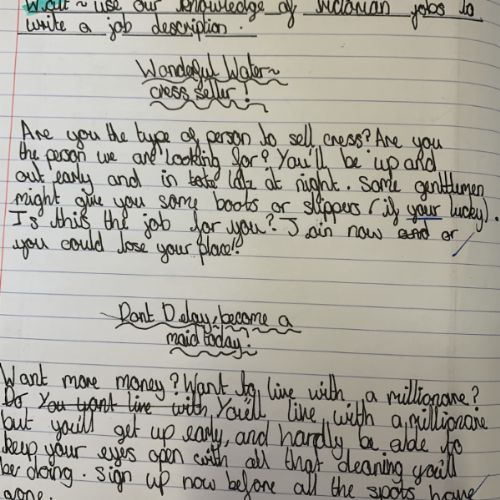 W.a.l.t ~ use our knowledge of Victorian jobs to
write a job description.
Wonderful Water~
cress seller!
Are you the type of person to sell cress? Are you
the person we are looking for? You'll be up and
out early and in late at night. Some gentlemen
might give you some boots or slippers (if your lucky).
Is this the job for you? Join now and or
you could lose your place!
Dont Delay, become a
maid today!
Want more money? Want to live with a millionare?
Do You want live with You'll live with a millionare
but you'll get up early, and hardly be able to
keep your eyes open with all that cleaning you'll
be doing. Sign up now before all the spots have
gone.